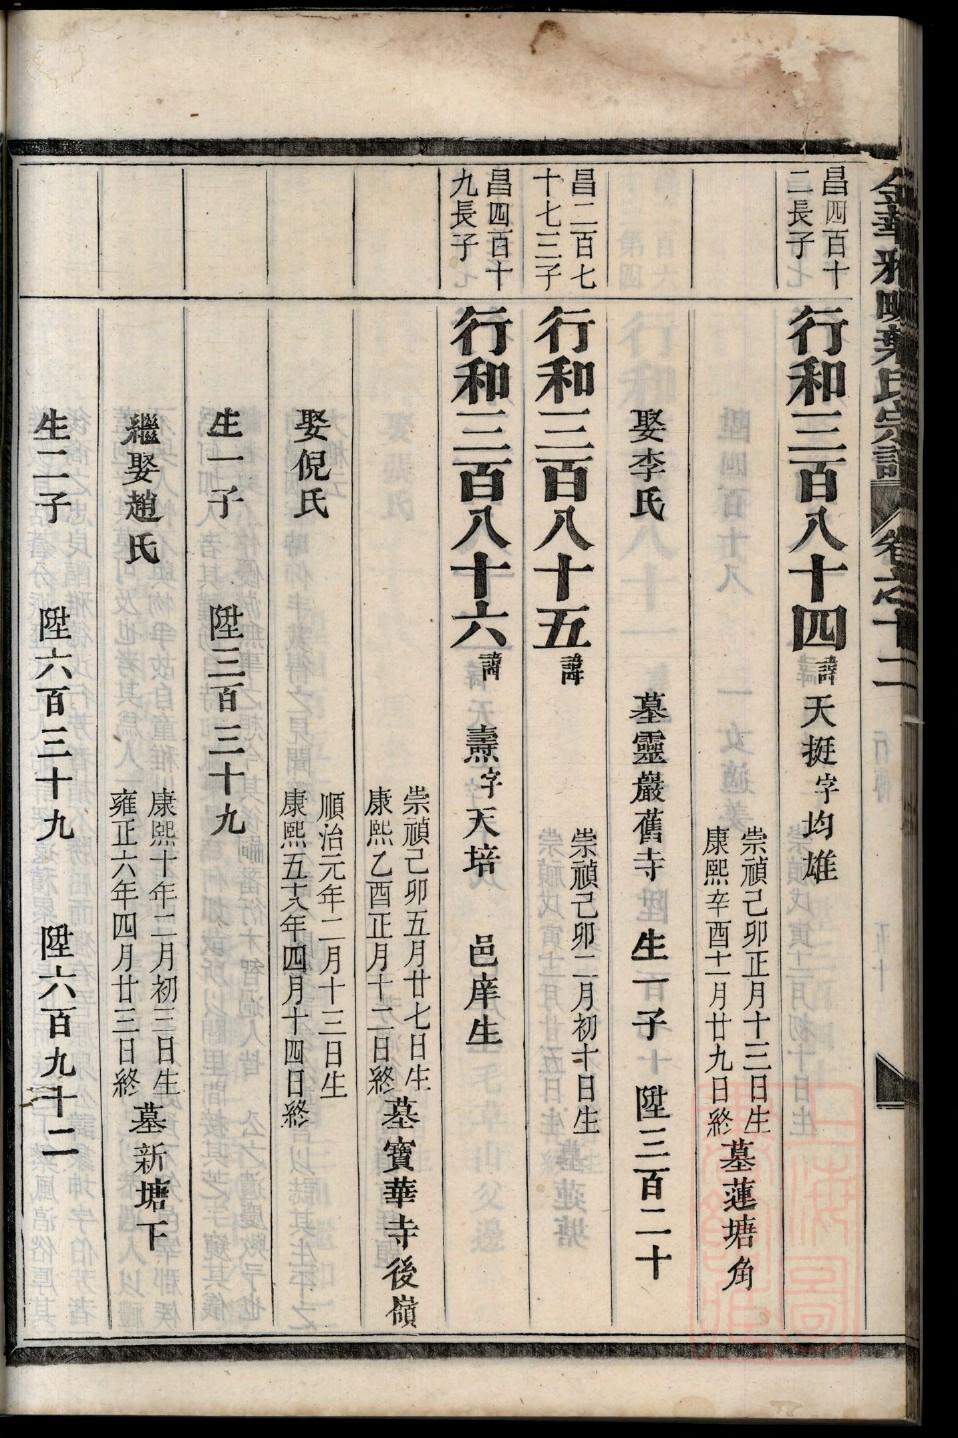 金華雅畈葉氏宗譜 卷之十二
昌四百十
二長子
行和三百八十四 諱天挺字均雄
崇禎己卯正月十三日生
康熙辛酉十一月廿九日終
墓蓮塘角
娶李氏 墓靈巖舊寺 生一子 陞三百二十
昌二百七
十七三子
行和三百八十五 諱
崇禎己卯二月初十日生
昌四百十
九長子
行和三百八十六 諱燾字天培 邑庠生
崇禎己卯五月廿七日生
康熙乙酉正月十二日終
墓寶華寺後嶺
娶倪氏
順治元年二月十三日生
康熙五十八年四月十四日終
生一子 陞三百三十九
繼娶趙氏
康熙十年二月初三日生
雍正六年四月廿三日終
墓新塘下
生二子 陞六百三十九 陞六百九十二